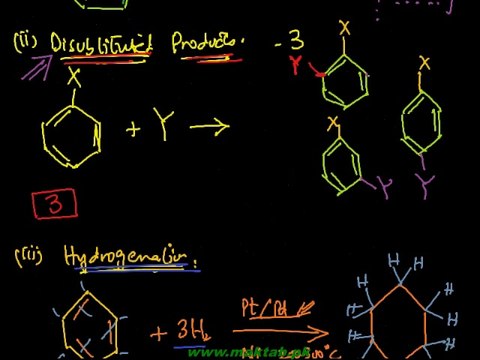 (ii) Disubstituted Products. - 3
X
+ Y →
X
Y
X
Y
X
Y
3
(iii) Hydrogenation.
+ 3H₂
Pt/Pd
H H
H H
H H
H
www.maktab.pk